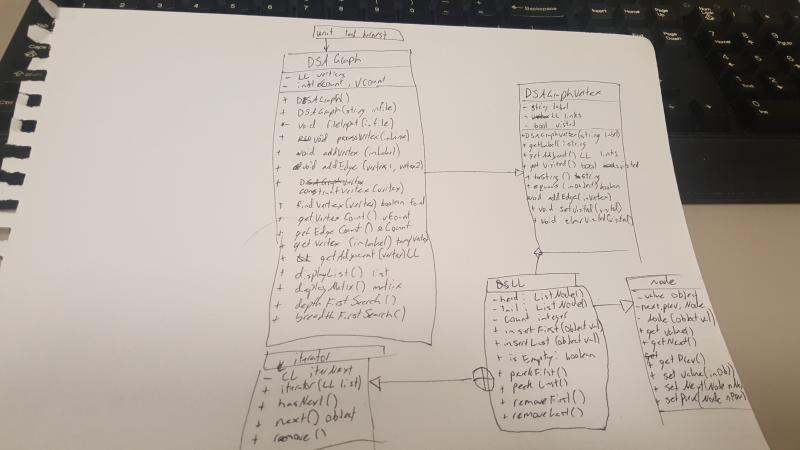 unit test harness
DSAGraph
- LL vertices
- int eCount, vCount
+ DSAGraph()
+ DSAGraph(string infile)
- void fileInput(infile)
+ void processVertex(inLine)
+ void addVertex(inLabel)
+ void addEdge (vertex1, vertex2)
+
constructVertex (vertex)
+ findVertex(vertex) boolean
+ getVertex Count() vCount
+ getEdge Count() eCount
+ getVertex (inLabel)
+ getAdjacent (vertex) LL
+ displayList() list
+ displayMatrix() matrix
+ depthFirstSearch()
+ breadthFirstSearch()
DSAGraphVertex
- string label
- LL links
- bool visited
+ DSAGraphVertex(string label)
+ getLabel() string
+ getAdjacent() LL links
+ get Visited() bool
+ toString() string
+ equals (inObject) boolean
void addEdge(inVertex)
+ void setVisited(visited)
+ void clearVisited(visited)
DSLL
- head : ListNode()
- tail : ListNode()
- count integer
+ insertFirst(object val)
+ insertLast (object val)
+ is Empty: boolean
+ peekFirst()
+ peek Last()
+ removeFirst()
+ removeLast()
node
- value object
- next, prev, Node
- Node (object val)
+ get value()
+ getNext()
+ get Prev()
+ set value(inObj)
+ set Next(Node
+ setPrev(Node
iterator
- LL iterNext
+ iterator (LL list)
+ hasNext()
+ next() object
+ remove()
Backspace
Insert
Home
Page
Up
Delete
End
Page
Down
Num
Lock